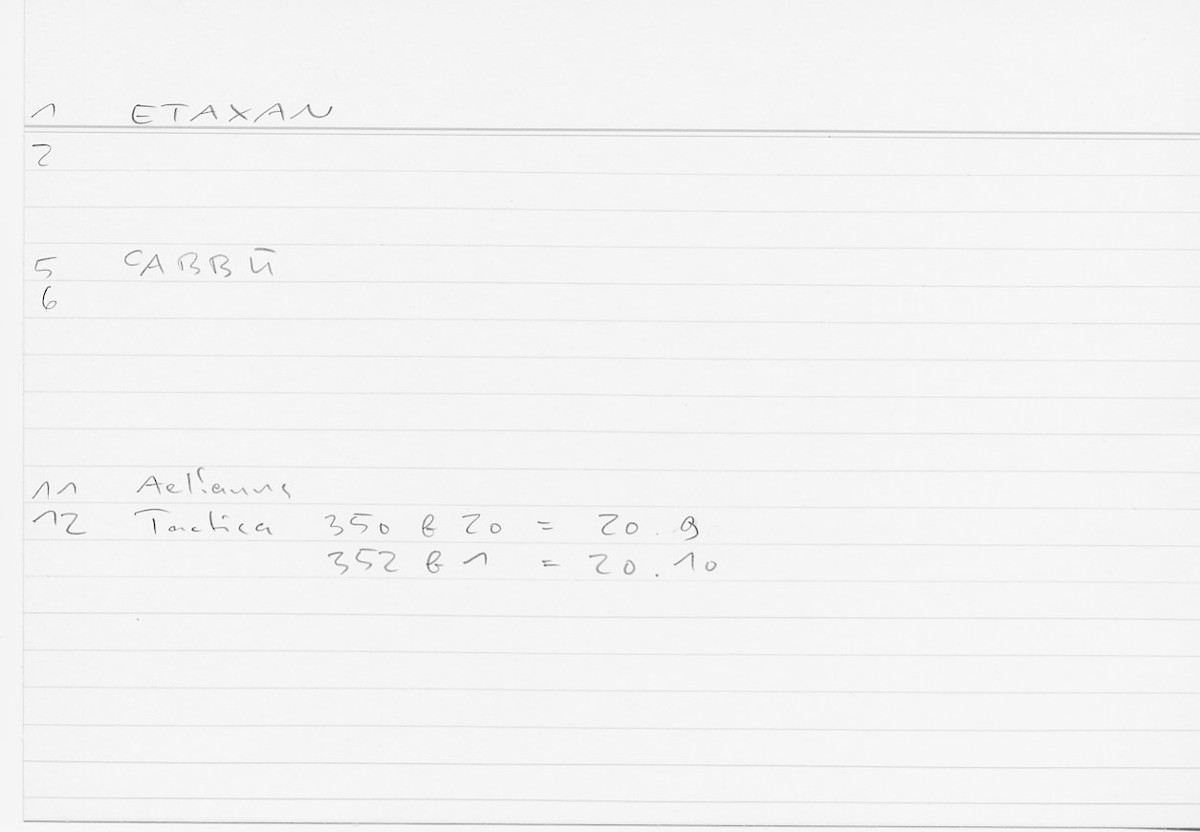 1 ETAXAN
2
5 CABBŪ
6
11 Aelianus
12 Tactica 350 b 20 = 20.9
352 b 1 = 20.10